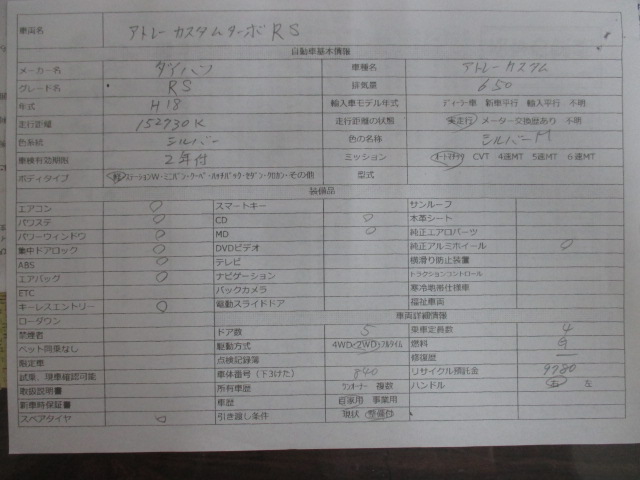 車両名 アトレーカスタムターボRS
自動車基本情報
メーカー名 ダイハツ 車種名 アトレーカスタム
グレード名 RS 排気量 650
年式 H18 輸入車モデル年式 ディーラー車 新車平行 輸入平行 不明
走行距離 152730K 走行距離の状態 実走行 メーター交換歴あり 不明
色系統 シルバー 色の名称 シルバーM
車検有効期限 2年付 ミッション オートマチック CVT 4速MT 5速MT 6速MT
ボディタイプ 軽・ステーションW・ミニバン・クーペ・ハッチバック・セダン・クロカン・その他 型式
装備品
エアコン ○ スマートキー サンルーフ
パワステ ○ CD ○ 本革シート
パワーウィンドウ ○ MD ○ 純正エアロパーツ
集中ドアロック ○ DVDビデオ 純正アルミホイール ○
ABS ○ テレビ 横滑り防止装置
エアバッグ ○ ナビゲーション トラクションコントロール
ETC バックカメラ 寒冷地帯仕様車
キーレスエントリー ○ 電動スライドドア 福祉車両
ローダウン 車両詳細情報
禁煙者 ドア数 5 乗車定員数 4
ペット同乗なし 駆動方式 4WD 2WD フルタイム 燃料
指定車 点検記録簿 修復歴 ー
試乗、現車確認可能 車体番号（下3けた） 840 リサイクル預託金 9780
取扱説明書 所有車歴 ワンオーナー 複数 ハンドル 右 左
新車時保証書 車歴 自家用 事業用
スペアタイヤ ○ 引き渡し条件 現状 整備付